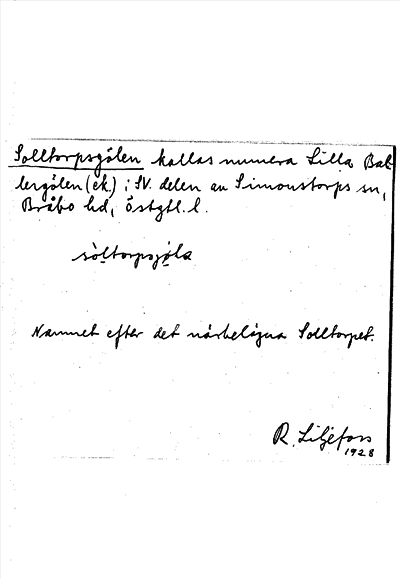 Solltorpsgölen kallas numera Lilla Bal-
lergölen (ek.) i SV. delen av Simonstorps sn,
Bråbo hd, Östgtl. l.
sòltorpsjöla
Namnet efter det närbelägna Solltorpet.
R. Liljefors
1928